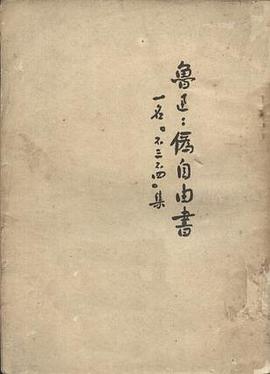 魯迅：偽自由書
一名：“不三不四”集